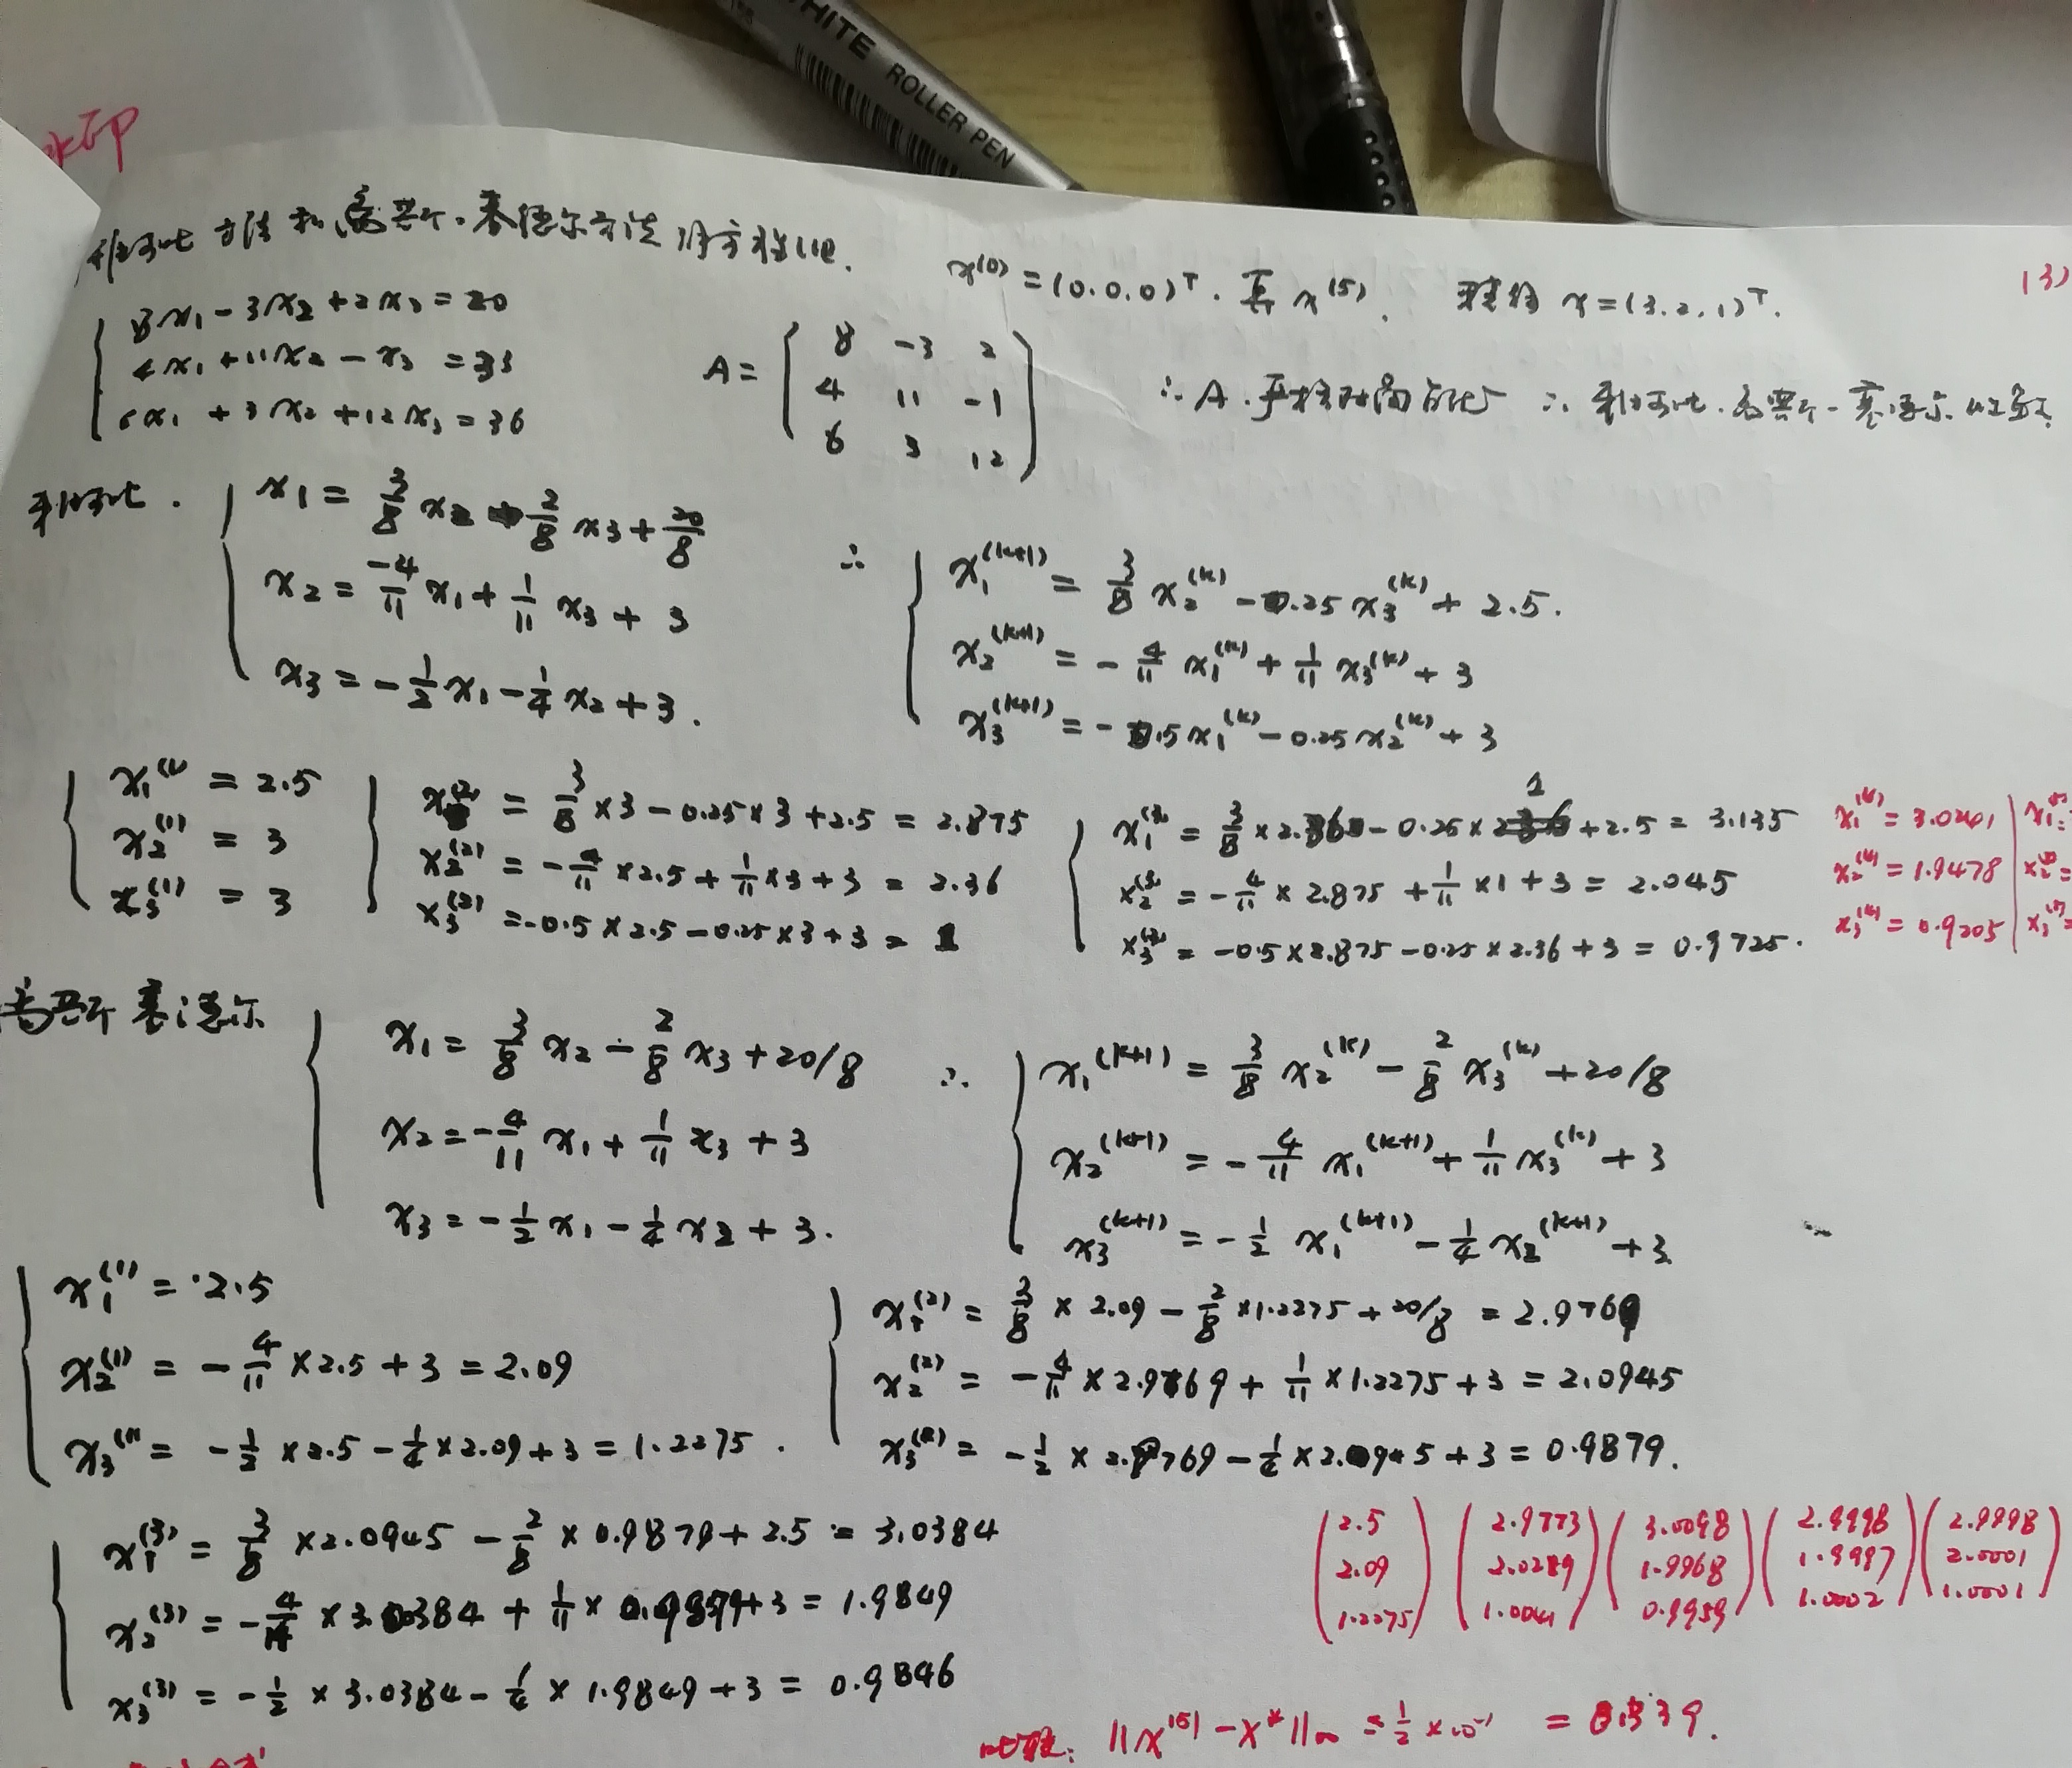 WHITE ROLLER PEN
水印
雅可比方法和高斯-塞德尔方法解方程组.
x^(0) = (0.0.0)^T. 至 x^(5). x = (3.2.1)^T.
(3)
8x₁ - 3x₂ + 2x₃ = 20
4x₁ + 11x₂ - x₃ = 33
6x₁ + 3x₂ + 12x₃ = 36
A = [8 -3 2
4 11 -1
6 3 12]
∵ A 严格对角占优 ∴ 雅可比.高斯-塞德尔.收敛.
雅可比.
x₁ = 3/8 x₂ - 2/8 x₃ + 20/8
x₂ = -4/11 x₁ + 1/11 x₃ + 3
x₃ = -1/2 x₁ - 1/4 x₂ + 3.
∴ x₁^(k+1) = 3/8 x₂^(k) - 0.25 x₃^(k) + 2.5.
x₂^(k+1) = - 4/11 x₁^(k) + 1/11 x₃^(k) + 3
x₃^(k+1) = - 0.5x₁^(k) - 0.25x₂^(k) + 3
x₁^(1) = 2.5
x₂^(1) = 3
x₃^(1) = 3
x₁^(2) = 3/8 × 3 - 0.25 × 3 + 2.5 = 2.875
x₂^(2) = - 4/11 × 2.5 + 1/11 × 3 + 3 = 2.36
x₃^(2) = -0.5 × 2.5 - 0.25 × 3 + 3 = 1
x₁^(3) = 3/8 × 2.36 - 0.25 × 1 + 2.5 = 3.135
x₂^(3) = - 4/11 × 2.875 + 1/11 × 1 + 3 = 2.045
x₃^(3) = -0.5 × 2.875 - 0.25 × 2.36 + 3 = 0.9725.
x₁^(4) = 3.0241
x₂^(4) = 1.9478
x₃^(4) = 0.9205
x₁^(5) =
x₂^(5) =
x₃^(5) =
高斯塞德尔
x₁ = 3/8 x₂ - 2/8 x₃ + 20/8
x₂ = - 4/11 x₁ + 1/11 x₃ + 3
x₃ = - 1/2 x₁ - 1/4 x₂ + 3.
∴ x₁^(k+1) = 3/8 x₂^(k) - 2/8 x₃^(k) + 20/8
x₂^(k+1) = - 4/11 x₁^(k+1) + 1/11 x₃^(k) + 3
x₃^(k+1) = - 1/2 x₁^(k+1) - 1/4 x₂^(k+1) + 3
x₁^(1) = 2.5
x₂^(1) = - 4/11 × 2.5 + 3 = 2.09
x₃^(1) = - 1/2 × 2.5 - 1/4 × 2.09 + 3 = 1.2275.
x₁^(2) = 3/8 × 2.09 - 2/8 × 1.2275 + 20/8 = 2.9769
x₂^(2) = - 4/11 × 2.9769 + 1/11 × 1.2275 + 3 = 2.0945
x₃^(2) = - 1/2 × 2.9769 - 1/4 × 2.0945 + 3 = 0.9879.
x₁^(3) = 3/8 × 2.0945 - 2/8 × 0.9879 + 2.5 = 3.0384
x₂^(3) = - 4/11 × 3.0384 + 1/11 × 0.9879 + 3 = 1.9849
x₃^(3) = - 1/2 × 3.0384 - 1/4 × 1.9849 + 3 = 0.9846
(2.5 2.09 1.2275) (2.9773 2.0289 1.0041) (3.0098 1.9968 0.9959) (2.9998 1.9997 1.0002) (2.9998 2.0001 1.0001)
||x^(5) - x*||∞ = 1/2 × 10^-1